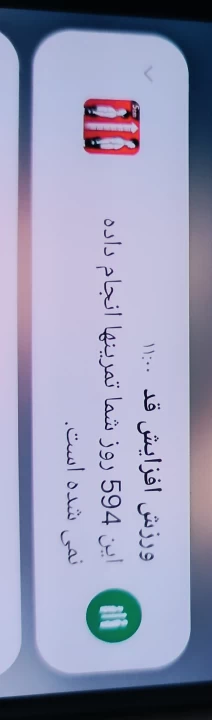 ورزش افزایش قد ۱۱:۰۰
این 594 روز شما تمرینها انجام داده
نمی شده است.